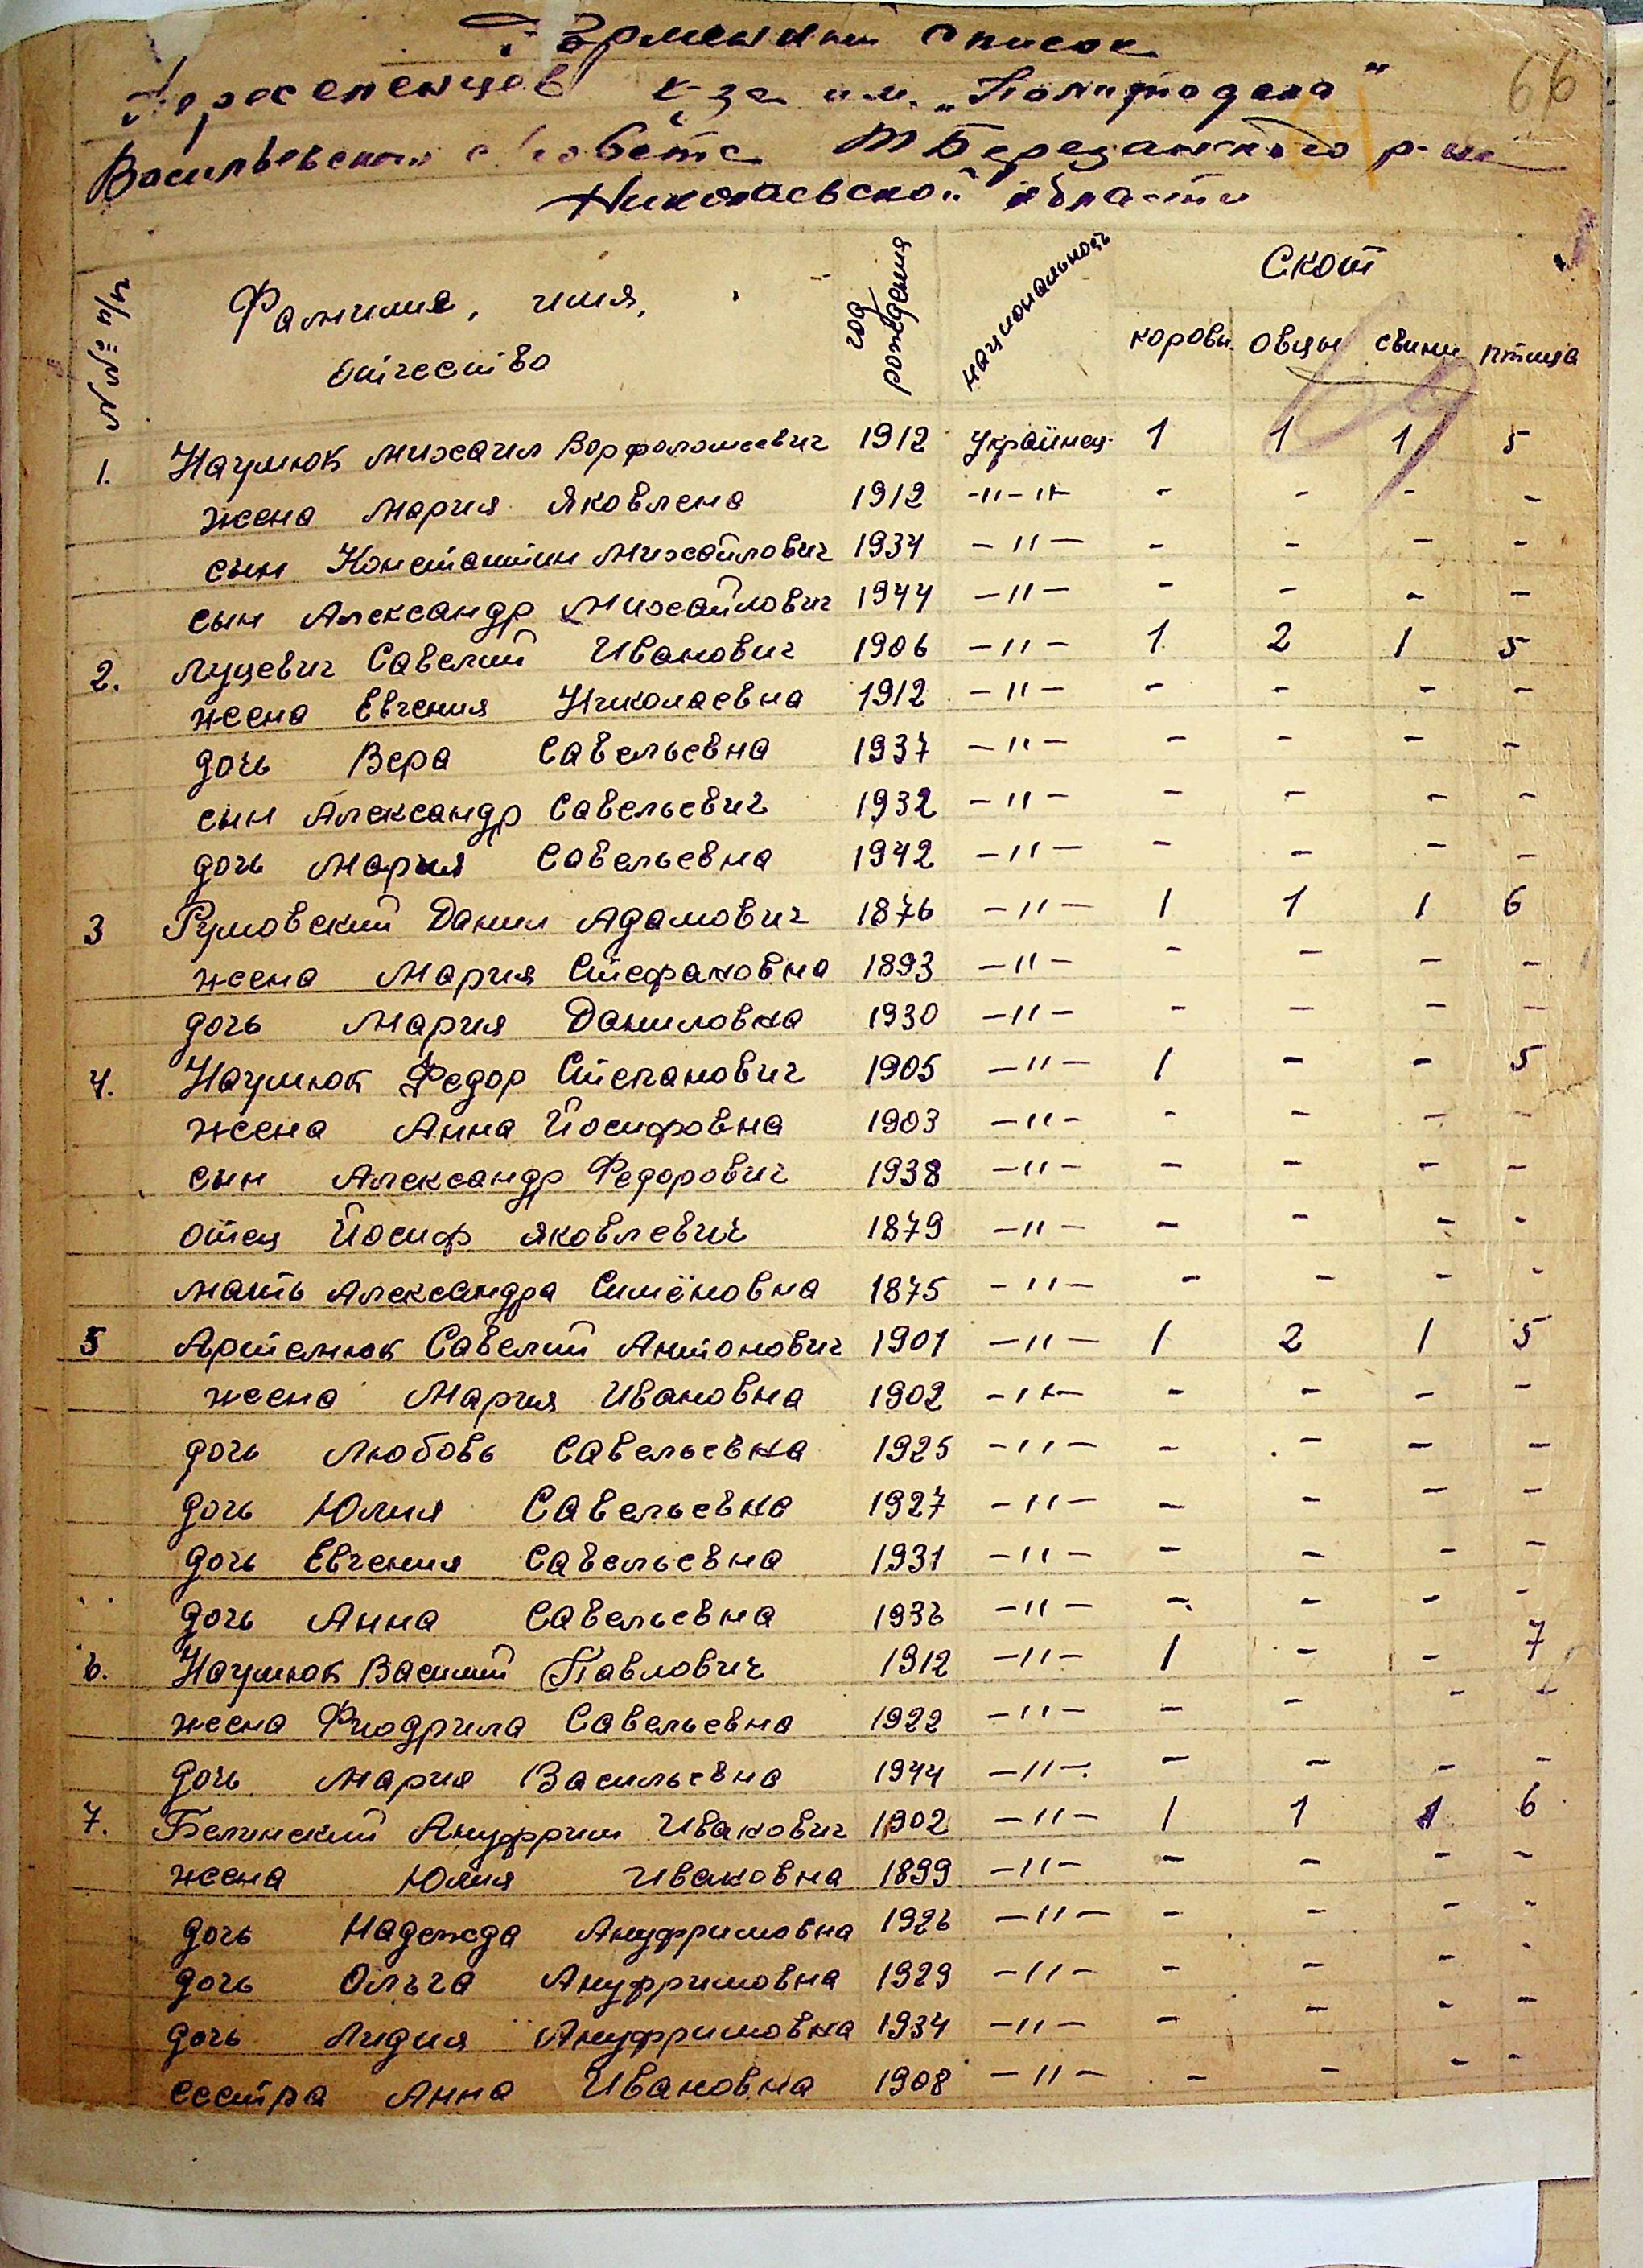 Форменный список
Переселенцев к-за им. „Политотдела"
Васильевского с/совета Т Березанского р-на
Николаевской области
66
№№ п/п Фамилия, имя, отчество год рождения национальность Скот
коровы овцы свиньи птица
1. Наумюк Михаил Ворфоломеевич 1912 Украинец 1 1 1 5
жена Мария Яковлена 1912 -"-"- - - - -
сын Константин Михайлович 1934 -"- - - - -
сын Александр Михайлович 1944 -"- - - - -
2. Луцевич Савелий Иванович 1906 -"- 1 2 1 5
жена Евгения Николаевна 1912 -"- - - - -
дочь Вера Савельевна 1937 -"- - - - -
сын Александр Савельевич 1932 -"- - - - -
дочь Мария Савельевна 1942 -"- - - - -
3 Румовский Данил Адамович 1876 -"- 1 1 1 6
жена Мария Стефановна 1893 -"- - - - -
дочь Мария Даниловна 1930 -"- - - - -
4. Наумюк Федор Степанович 1905 -"- 1 - - 5
жена Анна Йосифовна 1903 -"- - - - -
сын Александр Федорович 1938 -"- - - - -
отец Йосиф Яковлевич 1879 -"- - - - -
мать Александра Симёновна 1875 -"- - - - -
5 Артемюк Савелий Антонович 1901 -"- 1 2 1 5
жена Мария Ивановна 1902 -"- - - - -
дочь Любовь Савельевна 1925 -"- - - - -
дочь Юлия Савельевна 1927 -"- - - - -
дочь Евгения Савельевна 1931 -"- - - - -
дочь Анна Савельевна 1936 -"- - - - -
6. Наумюк Василий Павлович 1912 -"- 1 - - 7
жена Фиодрила Савельевна 1922 -"- - - -
дочь Мария Васильевна 1944 -"- - - - -
7. Белинский Ануфрий Иванович 1902 -"- 1 1 1 6
жена Юлия Ивановна 1899 -"- - - - -
дочь Надежда Ануфриловна 1926 -"- - - - -
дочь Ольга Ануфриловна 1929 -"- - - - -
дочь Лидия Ануфриловна 1934 -"- - - - -
сестра Анна Ивановна 1908 -"- - - - -